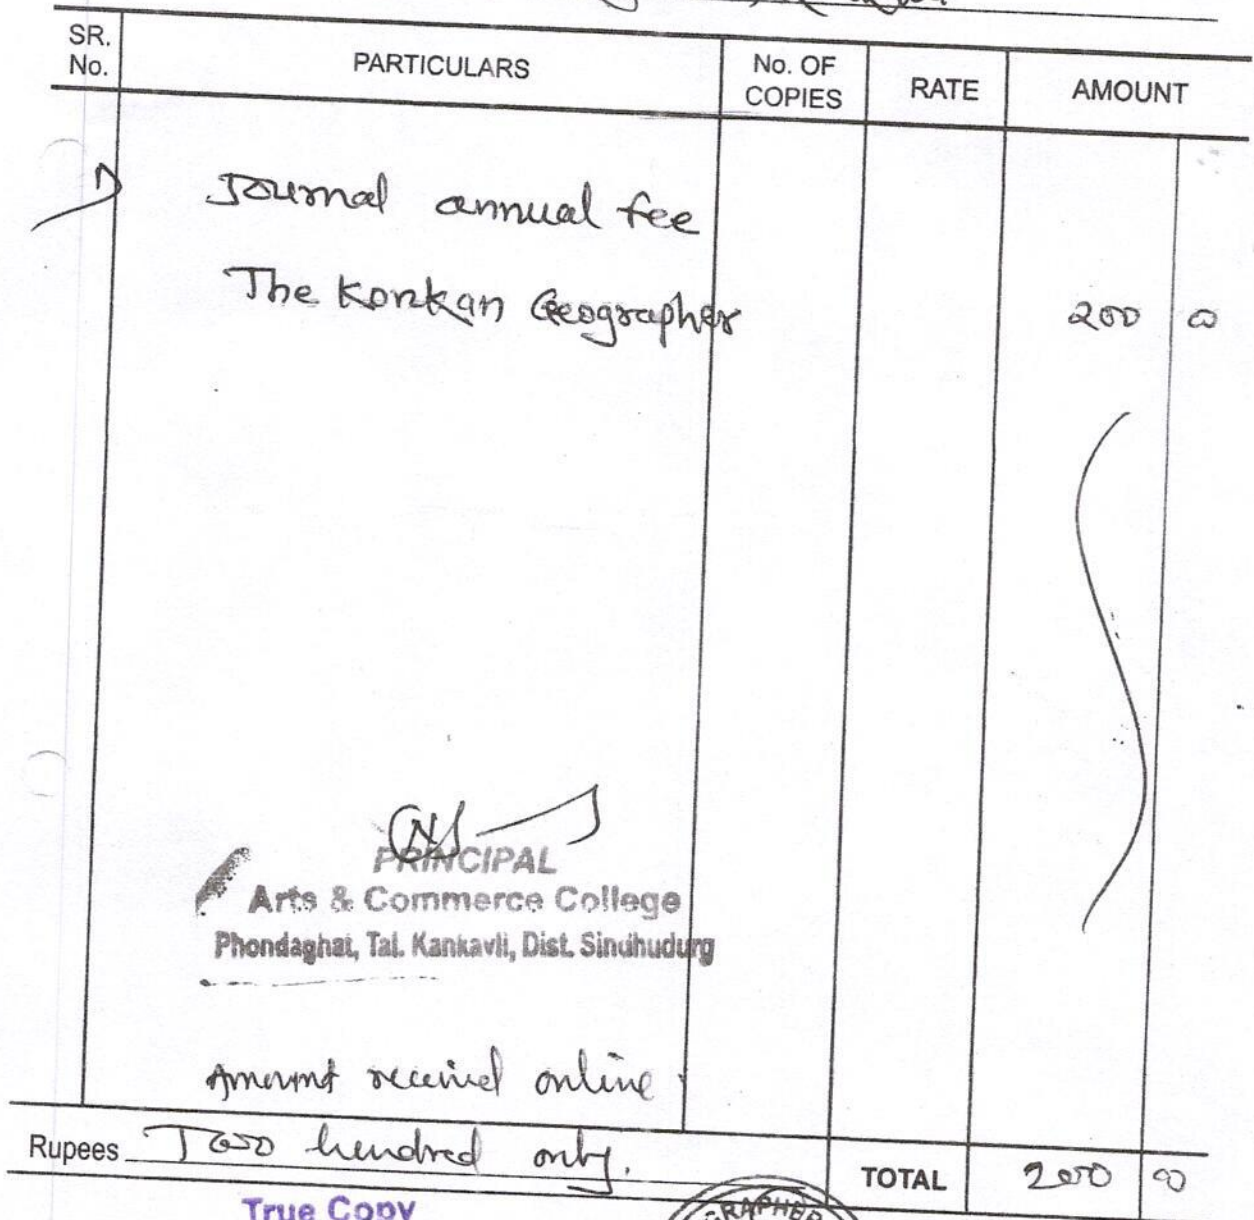 SR.
No.
PARTICULARS
No. OF
COPIES
RATE
AMOUNT
1)
Journal annual fee
The Konkan Geographer
200 00
PRINCIPAL
Arts & Commerce College
Phondaghat, Tal. Kankavli, Dist. Sindhudurg
Amount received online
Rupees Two hundred only.
TOTAL
200 00
True Copy
GRAPHER